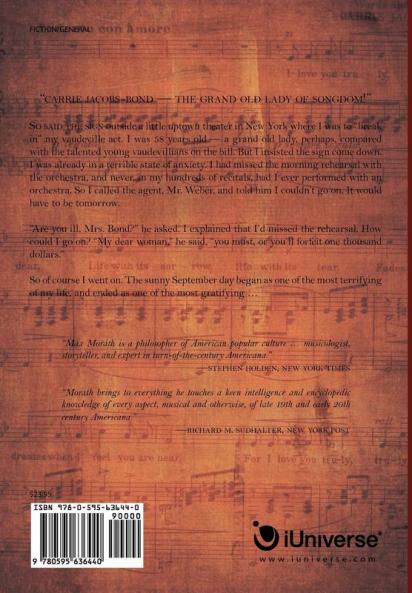 FICTION/GENERAL
con amore
I-love you tru - ly,
"CARRIE JACOBS-BOND — THE GRAND OLD LADY OF SONGDOM!"
SO SAID THE SIGN outside a little uptown theater in New York where I was to "break
in" my vaudeville act. I was 58 years old — a grand old lady, perhaps, compared
with the talented young vaudevillians on the bill. But I insisted the sign come down.
I was already in a terrible state of anxiety. I had missed the morning rehearsal with
the orchestra, and never, in my hundreds of recitals, had I ever performed with an
orchestra. So I called the agent, Mr. Weber, and told him I couldn't go on. It would
have to be tomorrow.
"Are you ill, Mrs. Bond?" he asked. I explained that I'd missed the rehearsal. How
could I go on? "My dear woman," he said, "you must, or you'll forfeit one thousand
dollars."
dear, Life with its sor - row, life with its tear Fades
So of course I went on. The sunny September day began as one of the most terrifying
of my life, and ended as one of the most gratifying …
"Max Morath is a philosopher of American popular culture … musicologist,
storyteller, and expert in turn-of-the-century Americana."
—STEPHEN HOLDEN, NEW YORK TIMES
"Morath brings to everything he touches a keen intelligence and encyclopedic
knowledge of every aspect, musical and otherwise, of late 19th and early 20th
century Americana."
—RICHARD M. SUDHALTER, NEW YORK POST
dreams when I feel you are near, For I love you tru-ly,
$23.95
ISBN 978-0-595-63644-0
90000
9 780595 636440
iUniverse®
www.iuniverse.com